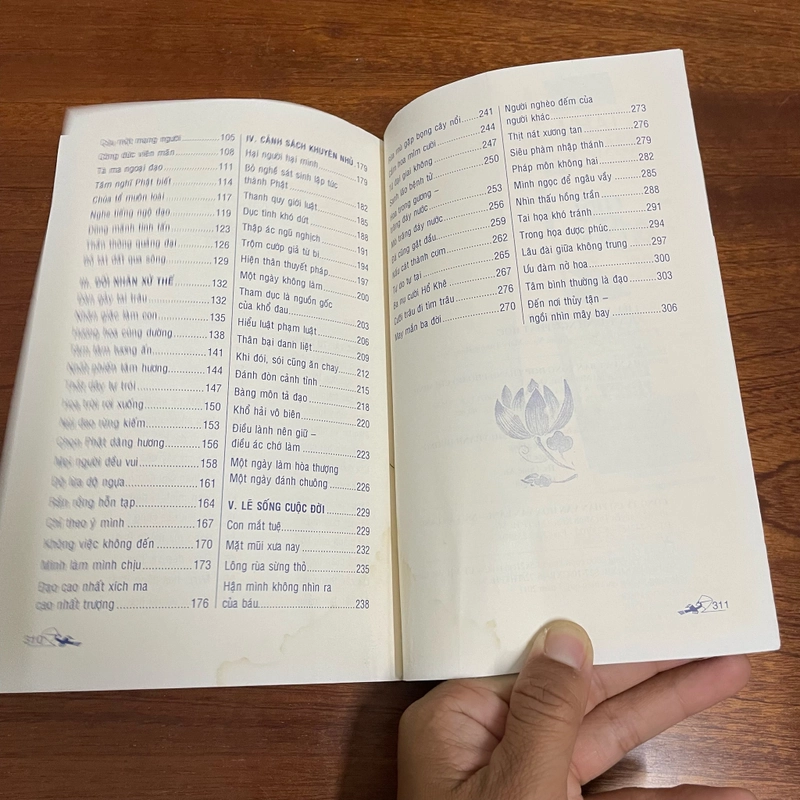 Cứu một mạng người 105
Công đức viên mãn 108
Tà ma ngoại đạo 111
Tâm nghĩ Phật biết 114
Chúa tể muôn loài 117
Nghe tiếng ngộ đạo 119
Dũng mãnh tinh tấn 123
Thần thông quảng đại 126
Bồ tát đất qua sông 129
III. ĐỐI NHÂN XỬ THẾ 132
132
làm con 135
cúng dường 138
141
tâm hương 144
147
Hoa trời rơi xuống 150
rừng kiếm 153
Chọn Phật dâng hương 156
Mọi người đều vui 158
Độ lừa độ ngựa 161
Rắn rồng hỗn tạp 164
Chỉ theo ý mình 167
Không việc không đến 170
Mình làm mình chịu 173
Đạo cao nhất xích ma
cao nhất trượng 176
310
IV. CẢNH SÁCH KHUYÊN NHỦ 179
Hại người hại mình 179
Bỏ nghề sát sinh lập tức
thành Phật 182
Thanh quy giới luật 185
Dục tình khó dứt 188
Thập ác ngũ nghịch 191
Trộm cướp giả từ bi 194
Hiện thân thuyết pháp 197
Một ngày không làm 200
Tham dục là nguồn gốc
của khổ đau 203
Hiểu luật phạm luật 206
Thân bại danh liệt 209
Khi đói, sói cũng ăn chay 212
Đánh đòn cảnh tỉnh 215
Bàng môn tả đạo 218
Khổ hải vô biên 220
Điều lành nên giữ –
điều ác chớ làm 223
Một ngày làm hòa thượng
Một ngày đánh chuông 226
V. LẼ SỐNG CUỘC ĐỜI 229
Con mắt tuệ 229
Mặt mũi xưa nay 232
Lông rùa sừng thỏ 235
Hận mình không nhìn ra
của báu 238
mà gặp bọng cây nổi 241
hoa mỉm cười 244
đại giai không 247
lão bệnh tử 250
trong gương –
đáy nước 253
trăng đáy nước 256
cũng gật đầu 259
cát thành cơm 262
Tự do tự tại 265
Ba nụ cười Hổ Khê 267
Cưỡi trâu đi tìm trâu 276
May mắn ba đời 270
Người nghèo đếm của
người khác 273
Thịt nát xương tan 276
Siêu phàm nhập thánh 279
Pháp môn không hai 282
Minh ngọc để ngâu vầy 285
Nhìn thấu hồng trần 288
Tai họa khó tránh 291
Trong họa được phúc 294
Lâu đài giữa không trung 297
Ưu đàm nở hoa 300
Tâm bình thường là đạo 303
Đến nơi thủy tận –
ngồi nhìn mây bay 306
311